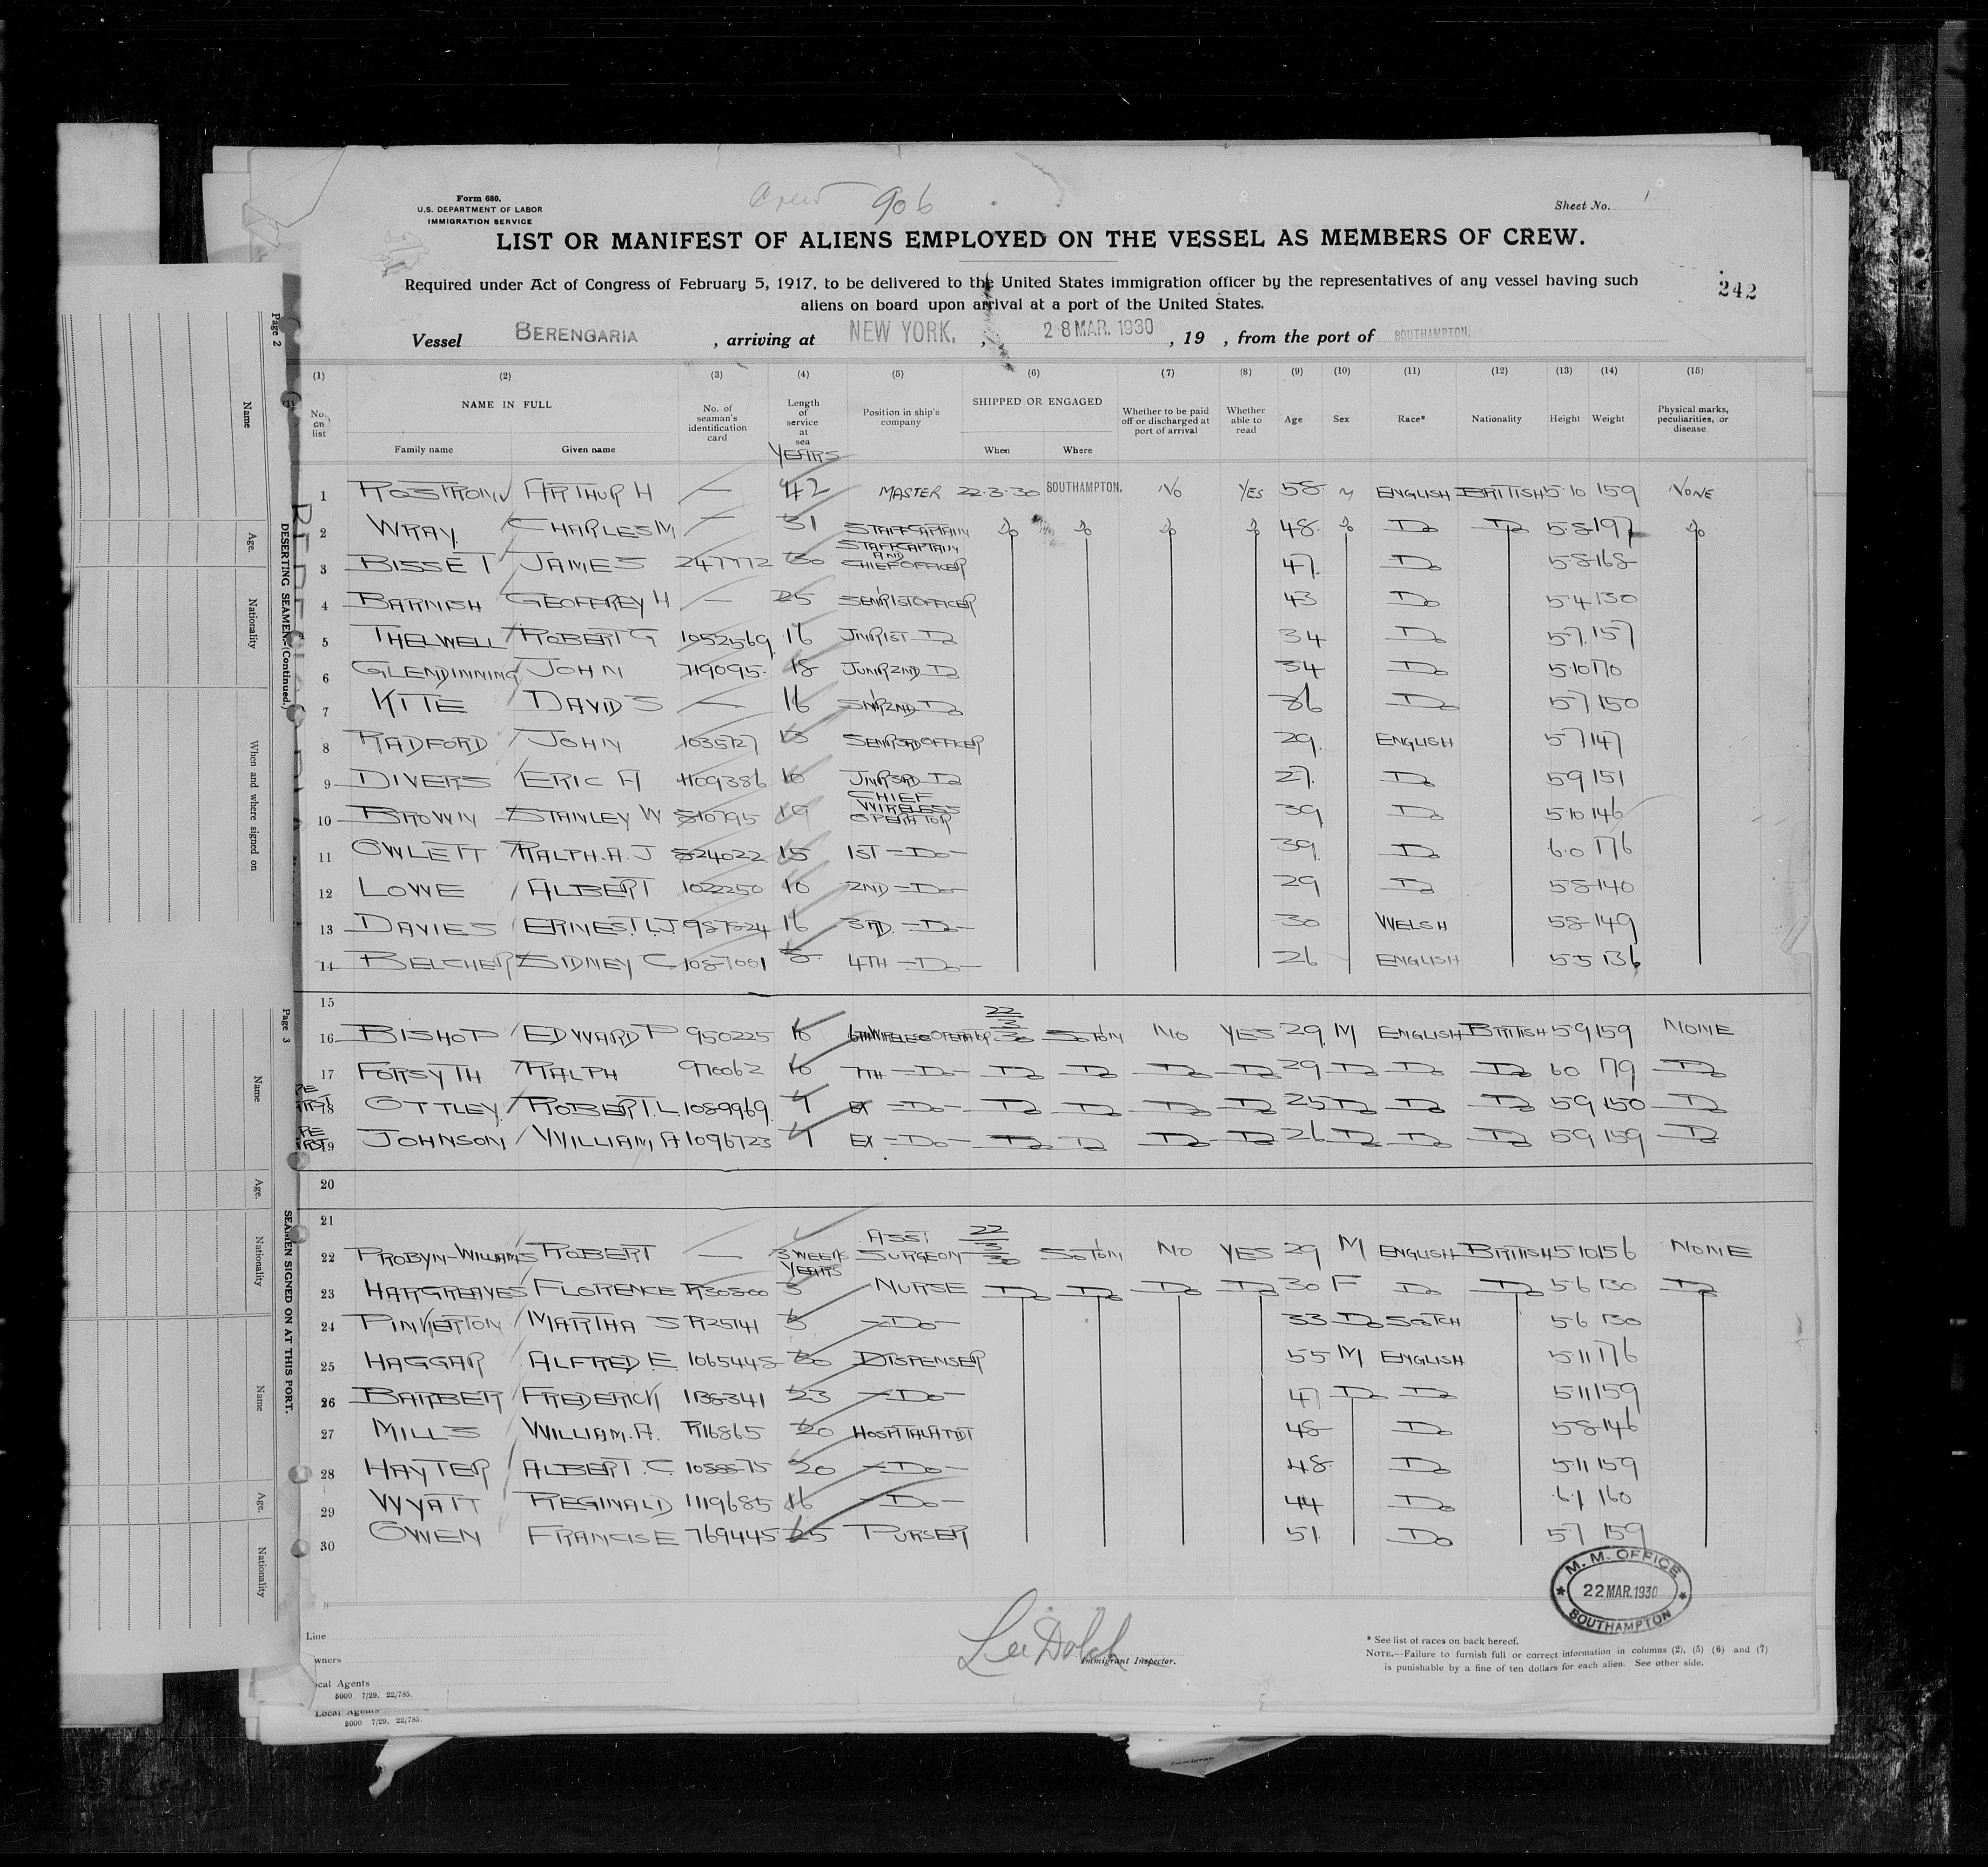 Form 680.
U.S. DEPARTMENT OF LABOR
IMMIGRATION SERVICE
Crew 906
Sheet No. 1
LIST OR MANIFEST OF ALIENS EMPLOYED ON THE VESSEL AS MEMBERS OF CREW.
Required under Act of Congress of February 5, 1917, to be delivered to the United States immigration officer by the representatives of any vessel having such
aliens on board upon arrival at a port of the United States.
242
Vessel BERENGARIA, arriving at NEW YORK, 28 MAR. 1930, 19 , from the port of SOUTHAMPTON.
(1) (2) (3) (4) (5) (6) (7) (8) (9) (10) (11) (12) (13) (14) (15)
No. on list NAME IN FULL Family name Given name No. of seaman's identification card Length of service at sea YEARS Position in ship's company SHIPPED OR ENGAGED When Where Whether to be paid off or discharged at port of arrival Whether able to read Age Sex Race* Nationality Height Weight Physical marks, peculiarities, or disease
1 ROSTRON ARTHUR H — 42 MASTER 22.3.30 SOUTHAMPTON. NO YES 58 M ENGLISH BRITISH 5.10 159 NONE
2 WRAY CHARLES M — 31 STAFF CAPTAIN do do do do 48 do Do Do 5.8 197 do
3 BISSET JAMES 247772 30 STAFF CAPTAIN AND CHIEF OFFICER 47 Do 5.8 168
4 BARNISH GEOFFREY H — 25 SENR 1ST OFFICER 43 Do 5.4 130
5 THELWELL ROBERT G 1052569 16 JNR 1ST Do 34 Do 5.7 157
6 GLENDINNING JOHN 719095 18 JUNR 2ND Do 34 Do 5.10 170
7 KITE DAVID S — 16 SNR 2ND Do 36 Do 5.7 150
8 RADFORD JOHN 1035727 13 SENR 3RD OFFICER 29 ENGLISH 5.7 147
9 DIVERS ERIC A 1109386 10 JNR 3RD Do 27 Do 5.9 151
10 BROWN STANLEY W 810795 19 CHIEF WIRELESS OPERATOR 39 Do 5.10 146
11 OWLETT RALPH.A.J 824022 15 1ST —Do— 39 Do 6.0 176
12 LOWE ALBERT 1022250 10 2ND —Do— 29 Do 5.8 140
13 DAVIES ERNEST.L.J 987824 16 3RD. —Do— 30 WELSH 5.8 149
14 BELCHER SIDNEY C 1087001 4TH —Do— 26 ENGLISH 5.5 136
15
16 BISHOP EDWARD P 950225 10 6TH WIRELESS OPERATOR 22/3/30 SOTON NO YES 29 M ENGLISH BRITISH 5.9 159 NONE
17 FORSYTH RALPH 970062 10 7TH —Do— Do Do Do Do 29 Do Do Do 6.0 179 Do
18 OTTLEY ROBERT.L 1089969 4 EX —Do— Do Do Do Do 25 Do Do Do 5.9 150 Do
19 JOHNSON WILLIAM A 1096723 4 EX —Do— Do Do Do Do 26 Do Do Do 5.9 159 Do
20
21
22 PROBYN-WILLIAMS ROBERT — 3 WEEKS ASST SURGEON 22/3/30 SOTON NO YES 29 M ENGLISH BRITISH 5.10 156 NONE
23 HARGREAVES FLORENCE R30800 YEARS 3 NURSE Do Do Do Do 30 F Do Do 5.6 130 Do
24 PINKERTON MARTHA S R25141 3 —Do— 33 Do SCOTCH 5.6 130
25 HAGGAR ALFRED E 1065448 30 DISPENSER 55 M ENGLISH 5.11 176
26 BARBER FREDERICK 1138341 23 —Do— 47 Do Do 5.11 159
27 MILLS WILLIAM.A. R16865 20 HOSPITAL ATTDT 48 Do 5.8 146
28 HAYTER ALBERT.C 1088875 20 —Do— 48 Do 5.11 159
29 WYATT REGINALD 1119685 16 —Do— 44 Do 6.1 160
30 OWEN FRANCIS E 769445 25 PURSER 51 Do 5.7 159
M. M. OFFICE
22 MAR. 1930
SOUTHAMPTON
Line
wners
ocal Agents
5000 7/29. 22/785.
Local Agents
5000 7/29. 22/785.
Immigrant Inspector.
* See list of races on back hereof.
NOTE.—Failure to furnish full or correct information in columns (2), (5) (6) and (7)
is punishable by a fine of ten dollars for each alien. See other side.
Page 2
DESERTING SEAMEN.—(Continued.)
Name
Age.
Nationality
When and where signed on
Page 3
SEAMEN SIGNED ON AT THIS PORT.
Name
Age.
Nationality
Name
Age.
Nationality